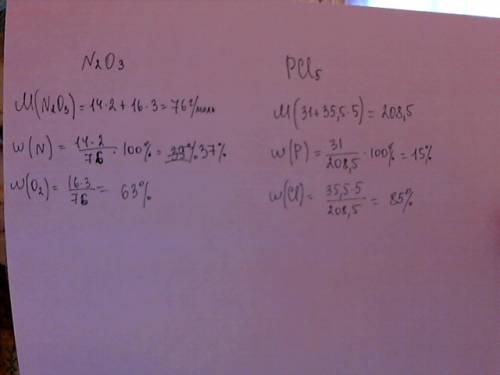 N2O3
M(N2O3) = 14·2 + 16·3 = 76 г/моль
w(N) = 14·2/76 · 100% = 39% 37%
w(O2) = 16·3/76 = 63%
PCl5
M(31+35,5·5) = 208,5
w(P) = 31/208,5 · 100% = 15%
w(Cl) = 35,5·5/208,5 = 85%